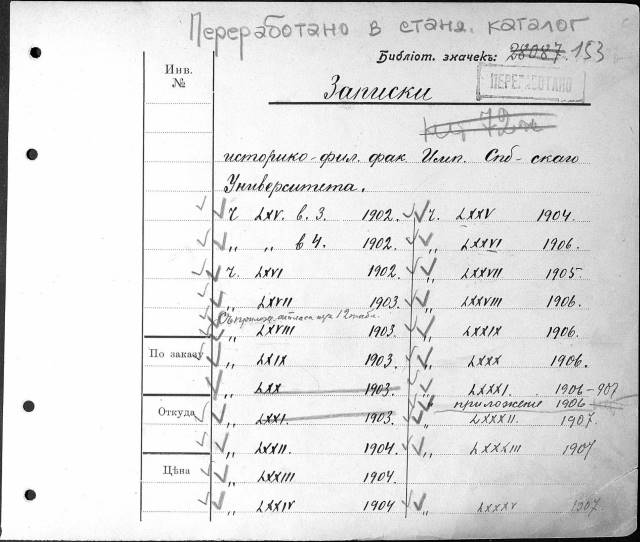 Переработано в станд. каталог
Библіот. значекъ: 28087. 153
ПЕРЕРАБОТАНО
Инв.
№
Записки
историко-фил. фак Имп. Спб-скаго
Университета.
ч. LXV. в. 3. 1902.
„ „ в 4. 1902.
ч. LXVI 1902.
„ LXVII 1903.
Съ прилож. атласа при 12 табл.
„ LXVIII 1903.
„ LXIX 1903.
„ LXX 1903.
„ LXXI. 1903.
„ LXXII. 1904.
„ LXXIII 1904.
„ LXXIV 1904
ч. LXXV 1904.
„ LXXVI 1906.
„ LXXVII 1905
„ LXXVIII 1906.
„ LXXIX 1906.
„ LXXX 1906.
„ LXXXI. 1906-907
приложение 1906
„ LXXXII. 1907.
„ LXXXIII 1907
„ LXXXV 1907
По заказу
Откуда
Цѣна